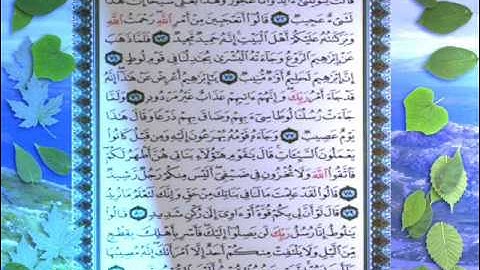 قَالَتْ يَٰوَيْلَتَىٰٓ ءَأَلِدُ وَأَنَا۠ عَجُوزٌ وَهَٰذَا بَعْلِى شَيْخًا إِنَّ هَٰذَا
لَشَىْءٌ عَجِيبٌ ٧٢ قَالُوٓا۟ أَتَعْجَبِينَ مِنْ أَمْرِ ٱللَّهِ رَحْمَتُ ٱللَّهِ
وَبَرَكَٰتُهُۥ عَلَيْكُمْ أَهْلَ ٱلْبَيْتِ إِنَّهُۥ حَمِيدٌ مَّجِيدٌ ٧٣ فَلَمَّا ذَهَبَ
عَنْ إِبْرَٰهِيمَ ٱلرَّوْعُ وَجَآءَتْهُ ٱلْبُشْرَىٰ يُجَٰدِلُنَا فِى قَوْمِ لُوطٍ ٧٤
إِنَّ إِبْرَٰهِيمَ لَحَلِيمٌ أَوَّٰهٌ مُّنِيبٌ ٧٥ يَٰٓإِبْرَٰهِيمُ أَعْرِضْ عَنْ هَٰذَآ إِنَّهُۥ
قَدْ جَآءَ أَمْرُ رَبِّكَ وَإِنَّهُمْ ءَاتِيهِمْ عَذَابٌ غَيْرُ مَرْدُودٍ ٧٦ وَلَمَّا
جَآءَتْ رُسُلُنَا لُوطًا سِىٓءَ بِهِمْ وَضَاقَ بِهِمْ ذَرْعًا وَقَالَ هَٰذَا
يَوْمٌ عَصِيبٌ ٧٧ وَجَآءَهُۥ قَوْمُهُۥ يُهْرَعُونَ إِلَيْهِ وَمِن قَبْلُ كَانُوا۟
يَعْمَلُونَ ٱلسَّيِّـَٔاتِ قَالَ يَٰقَوْمِ هَٰٓؤُلَآءِ بَنَاتِى هُنَّ أَطْهَرُ لَكُمْ
فَٱتَّقُوا۟ ٱللَّهَ وَلَا تُخْزُونِ فِى ضَيْفِىٓ أَلَيْسَ مِنكُمْ رَجُلٌ رَّشِيدٌ
٧٨ قَالُوا۟ لَقَدْ عَلِمْتَ مَا لَنَا فِى بَنَاتِكَ مِنْ حَقٍّ وَإِنَّكَ لَتَعْلَمُ مَا نُرِيدُ
٧٩ قَالَ لَوْ أَنَّ لِى بِكُمْ قُوَّةً أَوْ ءَاوِىٓ إِلَىٰ رُكْنٍ شَدِيدٍ ٨٠ قَالُوا۟
يَٰلُوطُ إِنَّا رُسُلُ رَبِّكَ لَن يَصِلُوٓا۟ إِلَيْكَ فَأَسْرِ بِأَهْلِكَ بِقِطْعٍ
مِّنَ ٱلَّيْلِ وَلَا يَلْتَفِتْ مِنكُمْ أَحَدٌ إِلَّا ٱمْرَأَتَكَ إِنَّهُۥ مُصِيبُهَا